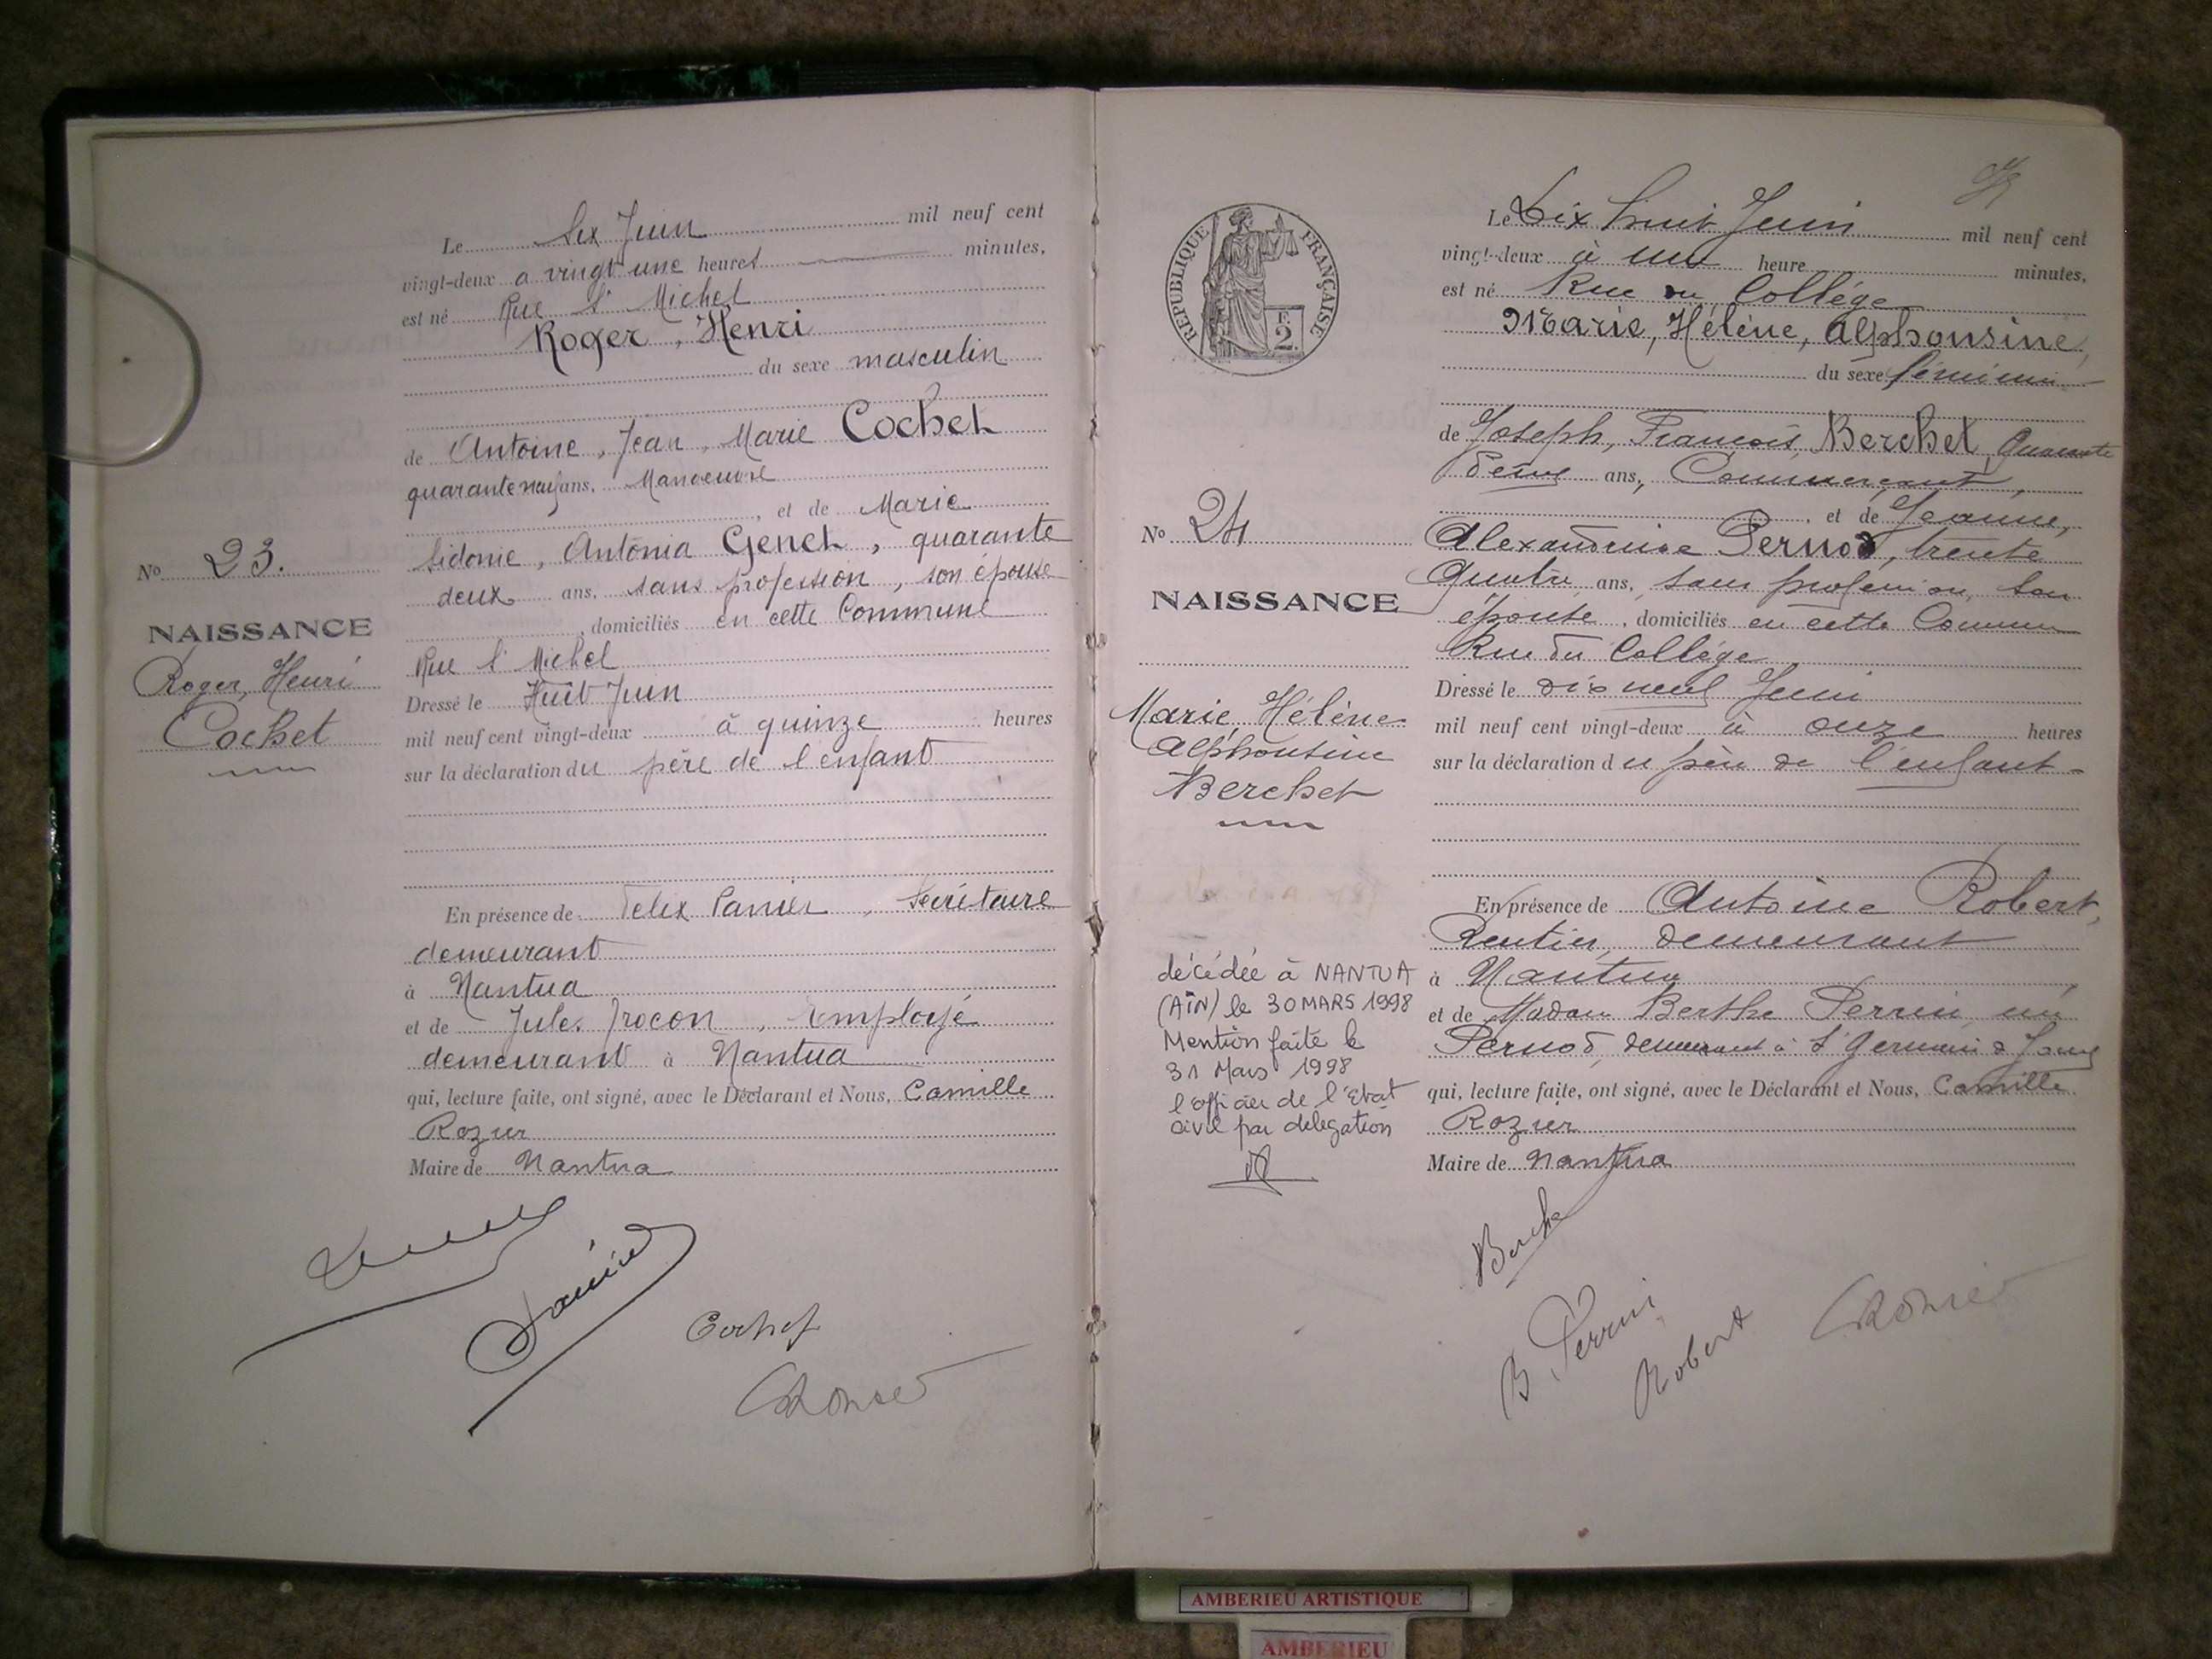 Le Six Juin mil neuf cent
vingt-deux a vingt une heures minutes,
est né Rue St Michel
Roger, Henri
du sexe masculin
de Antoine, Jean, Marie Cochet
quarante neuf ans, Manoeuvre
, et de Marie
Sidonie, Antonia Genet, quarante
deux ans, sans profession, son épouse
, domiciliés en cette Commune
Rue St Michel
Dressé le Huit Juin
mil neuf cent vingt-deux à quinze heures
sur la déclaration du père de l'enfant
En présence de Felix Panier, Secrétaire
demeurant
à Nantua
et de Jules, Employé
demeurant à Nantua
qui, lecture faite, ont signé, avec le Déclarant et Nous, Camille
Rozier
Maire de Nantua
No 23.
NAISSANCE
Roger, Henri
Cochet
Panier
Cochet
CRozier
RÉPUBLIQUE FRANÇAISE
2F.
No 24
NAISSANCE
Marie, Hélène
Alphonsine
Berchet
décédée à NANTUA
(AIN) le 30 MARS 1998
Mention faite le
31 Mars 1998
l'officier de l'Etat
civil par délégation
Le Dix huit Juin mil neuf cent
vingt-deux à une heure minutes,
est né Rue du Collége
Marie, Hélène, Alphonsine,
du sexe féminin
de Joseph, François, Berchet, Quarante
deux ans, Commerçant,
, et de Jeanne,
Alexandrine Pernod, trente
Quatre ans, sans profession, son
épouse, domiciliés en cette Commune
Rue du Collége
Dressé le dix neuf Juin
mil neuf cent vingt-deux à onze heures
sur la déclaration du père de l'enfant
En présence de Antoine Robert,
Rentier, demeurant
à Nantua
et de Madame Berthe Perrin née
Pernod, demeurant à St Germain de Joux
qui, lecture faite, ont signé, avec le Déclarant et Nous, Camille
Rozier
Maire de Nantua
Berche
B. Perrin
Robert
CRozier
AMBERIEU ARTISTIQUE
AMBERIEU